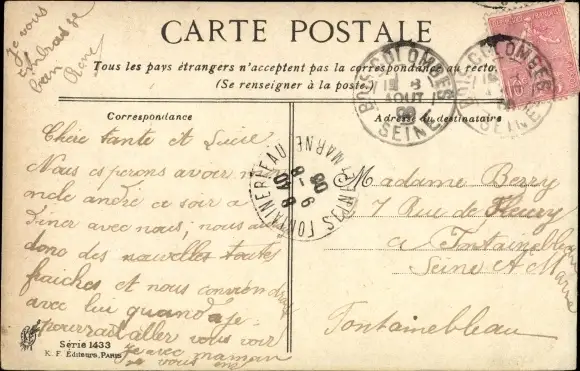 CARTE POSTALE
Tous les pays étrangers n'acceptent pas la correspondance au recto.
(Se renseigner à la poste.)
Correspondance
Adresse du destinataire
Je vous
embrasse
bien
René
BOIS-COLOMBES
8
AOUT
06
SEINE
BOIS COLOMBES
SEINE
FONTAINEBLEAU
8 40
9 - 8
06
SNE & MARNE
Chère tante et Lucie
Nous esperons avoir mon
oncle andre ce soir a
diner avec nous; nous
donc des nouvelles toutes
fraiches et nous
avec lui quand je
pourrait aller vous voir
Je avec maman
vous
Madame Berry
7 Rue de Fleury
a Fontainebleau
Seine et Marne
Fontainebleau
Série 1433
K. F. Éditeurs, PARIS